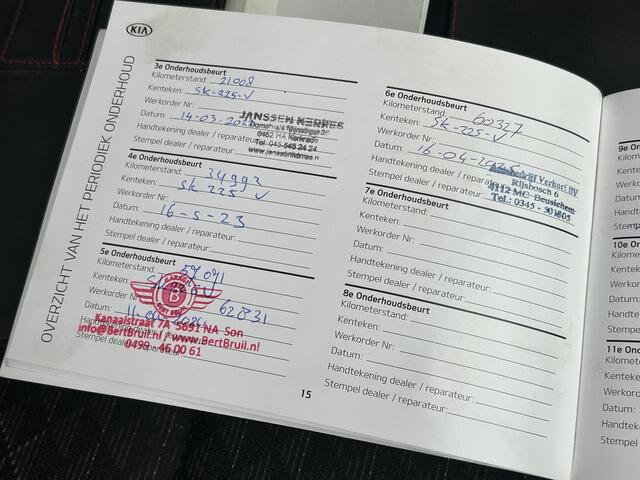 KIA
OVERZICHT VAN HET PERIODIEK ONDERHOUD
3e Onderhoudsbeurt
Kilometerstand: 21008
Kenteken: SK-225-V
Werkorder Nr:
Datum: 14-03-
Handtekening dealer / reparateur:
Stempel dealer / reparateur:
JANSSEN KERRES
Tel. 045-545 24 24
www.janssenkerres.nl
4e Onderhoudsbeurt
Kilometerstand: 34992
Kenteken: SK 225 V
Werkorder Nr:
Datum: 16-5-23
Handtekening dealer / reparateur:
Stempel dealer / reparateur:
5e Onderhoudsbeurt
Kilometerstand:
Kenteken:
Werkorder Nr: 62831
Datum:
B
BERT BRUIL
Kanaalstraat 7A 5691 NA Son
info@BertBruil.nl / www.BertBruil.nl
0499 - 46 00 61
Stempel dealer / reparateur:
6e Onderhoudsbeurt
Kilometerstand: 60327
Kenteken: SK-225-V
Werkorder Nr:
Datum: 16-04-2025
Handtekening dealer / reparateur:
Stempel dealer / reparateur:
Autobedrijf Verhoef BV
Rijsbosch 6
4112 MC Beusichem
Tel.: 0345 - 501605
7e Onderhoudsbeurt
Kilometerstand:
Kenteken:
Werkorder Nr:
Datum:
Handtekening dealer / reparateur:
Stempel dealer / reparateur:
8e Onderhoudsbeurt
Kilometerstand:
Kenteken:
Werkorder Nr:
Datum:
Handtekening dealer / reparateur:
Stempel dealer / reparateur:
15
9e On
Kilome
Kente
Werk
Datu
Hand
Stem
10e O
Kilom
Kent
Wer
Dat
Han
Ste
11e O
Kilo
Ke
W
D
H
S